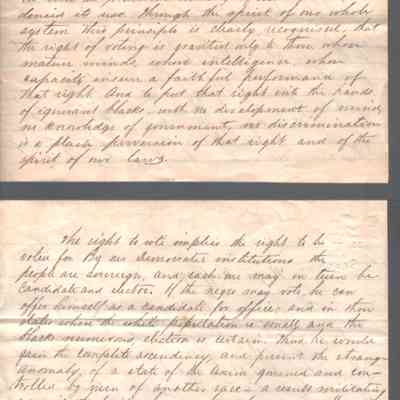 denied its use. Through the spirit of our whole
system this principle is clearly recognized, that
the right of voting is granted only to those whose
mature minds, whose intelligence, whose
capacity ensure a faithful performance of
that right. And to put that right into the hands
of ignorant blacks, with no development of mind,
no knowledge of government, no discrimination
is a plain perversion of that right and of the
spirit of our laws.
The right to vote implies the right to be
voted for. By our Democratic institutions the
people are sovereign, and each one may in turn be
candidate and elector. If the negro may vote, he can
offer himself as a candidate for office, and in those
states where the white population is small and the
blacks numerous, election is certain. Thus he would
gain the complete ascendency and present the strange
anomaly, of a state of the Union governed and con-
trolled by men of another race - a result